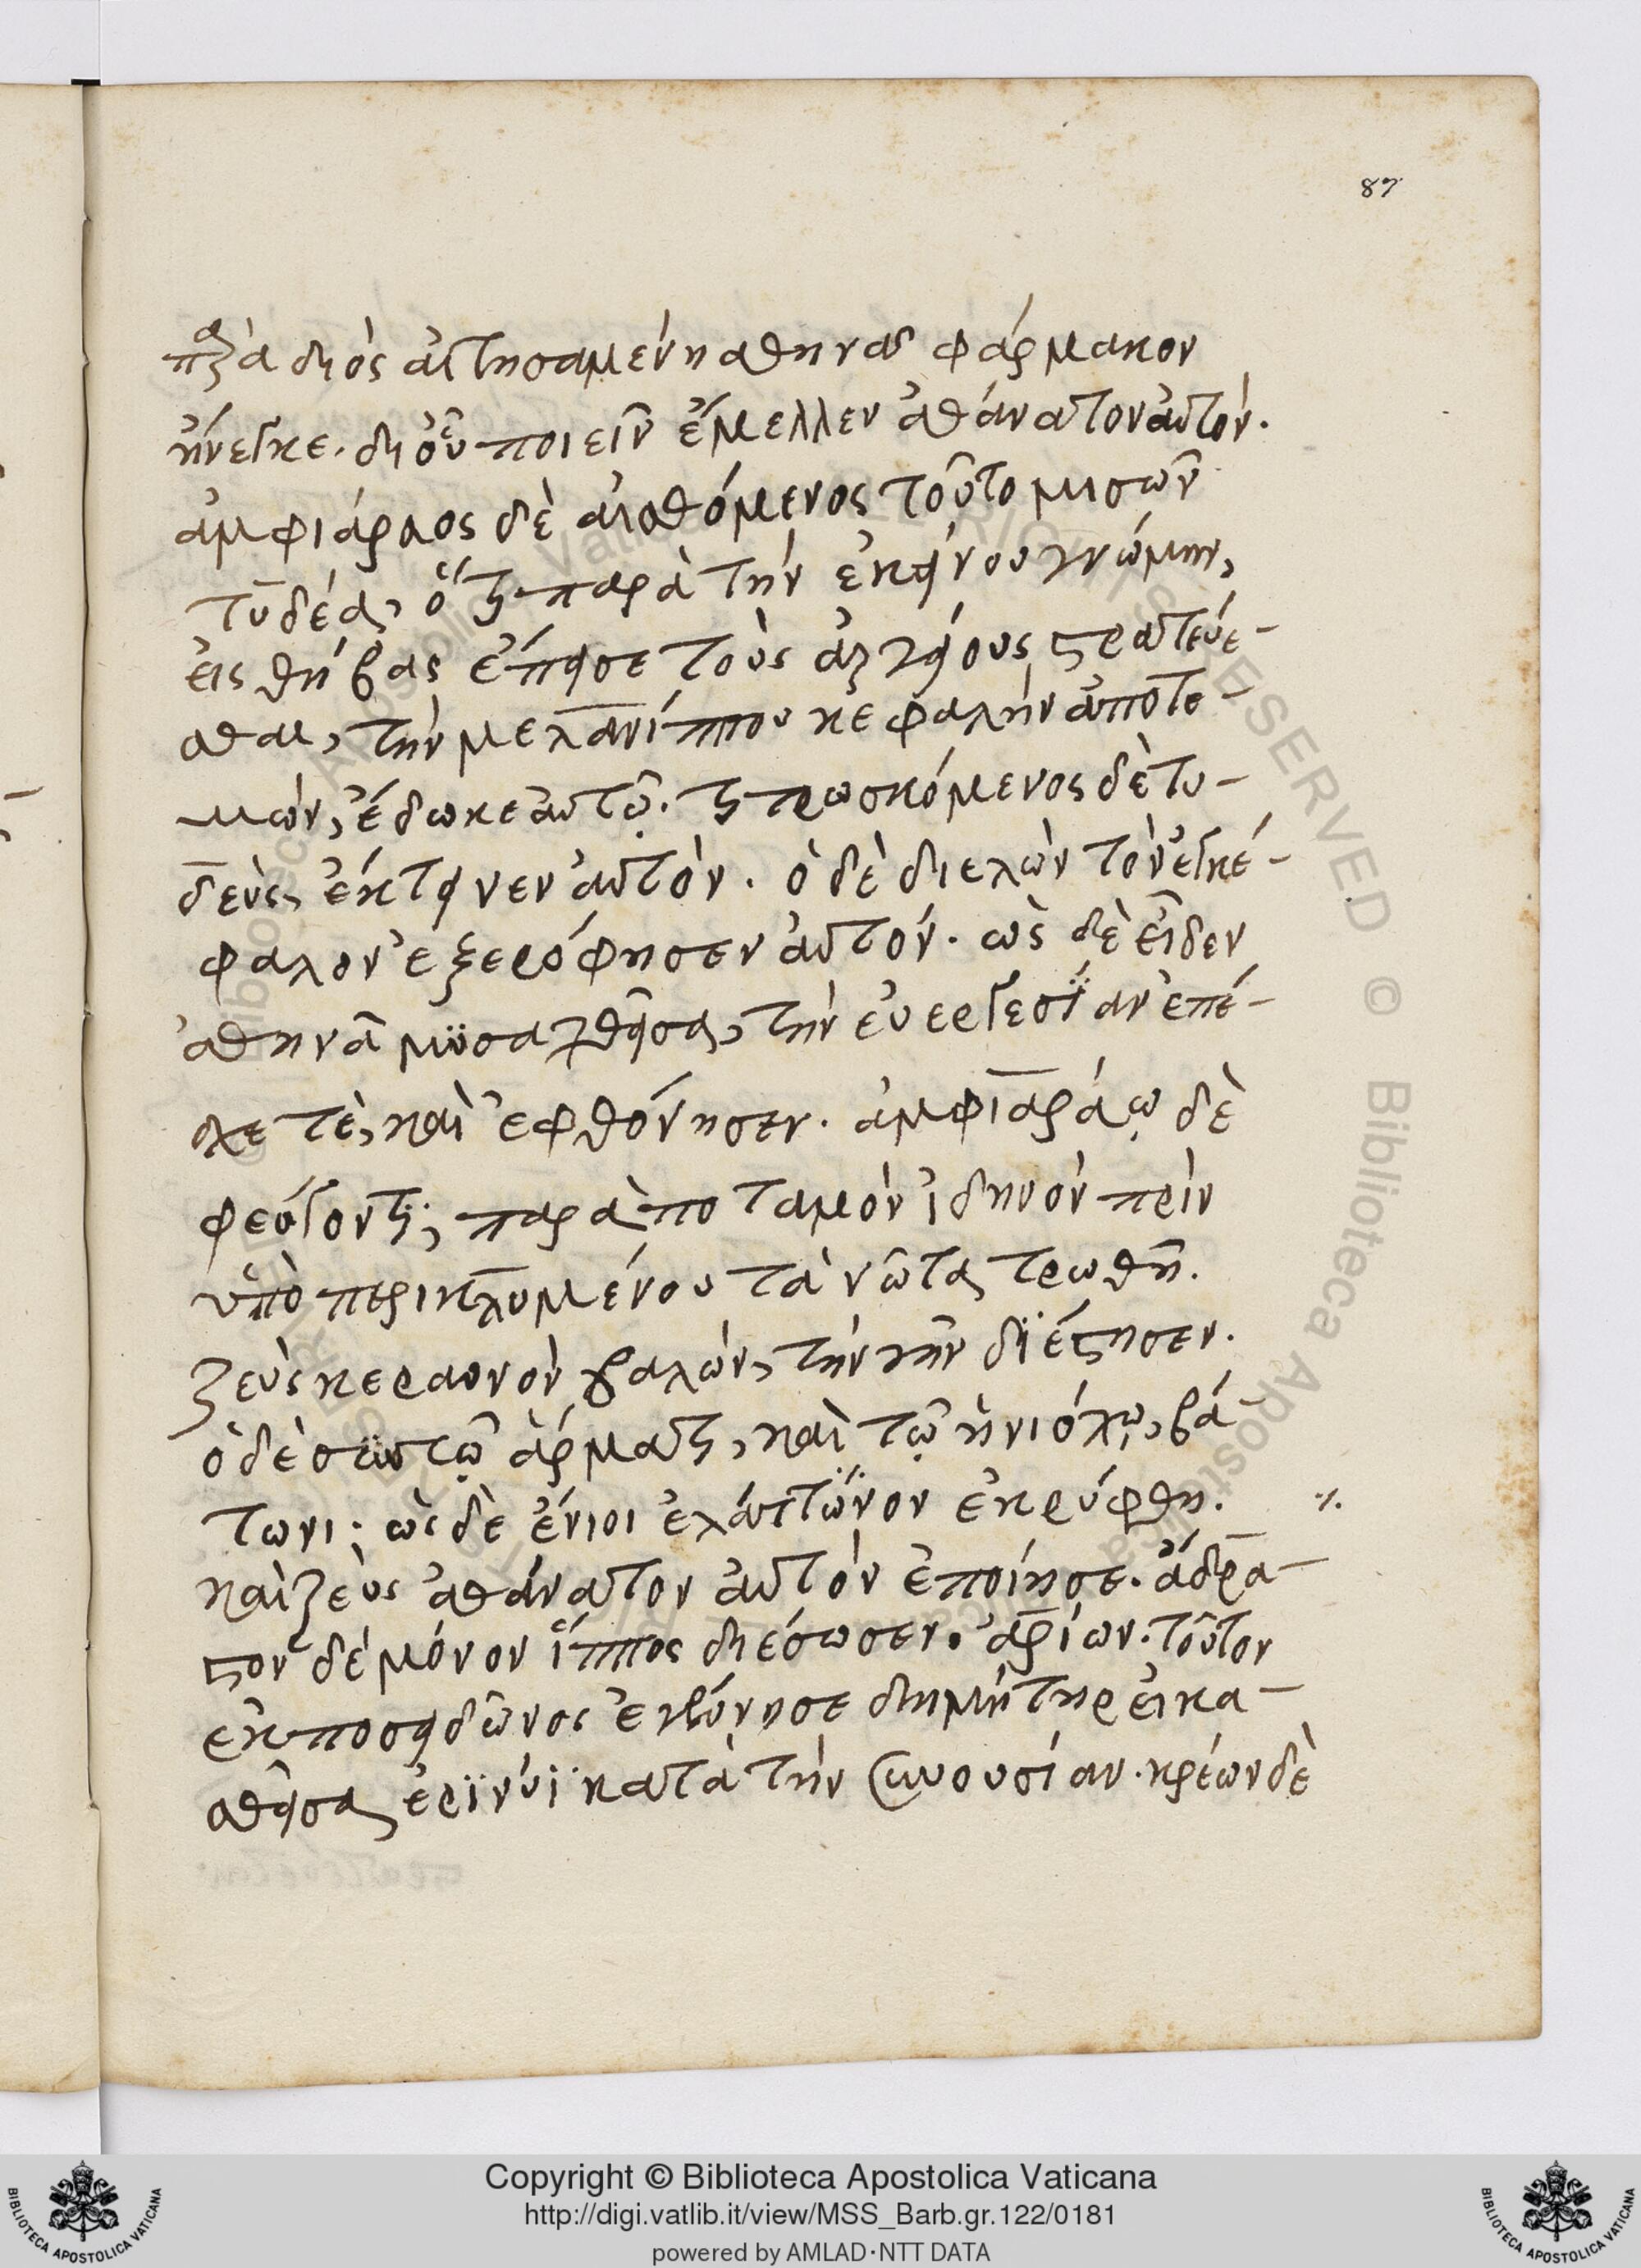 87
παρὰ διὸς αἰτησαμένη ἀθηνᾶ φάρμακον
ἤνεγκε. δι οὗ ποιεῖν ἔμελλεν ἀθάνατον αὐτόν.
ἀμφιάραος δὲ αἰσθόμενος τοῦτο μισῶν
τυδέα, ὅτι παρὰ τὴν ἐκείνου γνώμην,
εἰς θήβας ἔπεισε τοὺς ἀργείους στρατεύε-
σθαι, τὴν μελανίππου κεφαλὴν ἀποτε-
μὼν, ἔδωκε αὐτῷ. τιτρωσκόμενος δὲ τυ-
δεὺς, ἔκτεινεν αὐτὸν. ὁ δὲ διελὼν τὸν ἐγκέ-
φαλον ἐξερόφησεν αὐτόν. ὡς δὲ εἶδεν
ἀθηνᾶ μϋσαχθεῖσα, τὴν εὐεργεσΐαν ἐπέ-
σχε τὲ, καὶ ἐφθόνησεν. ἀμφιαράῳ δὲ
φεύγοντι, παρὰ ποταμὸν ἰσμηνὸν πρὶν
ὑπὸ περικλυμένου τὰ νῶτα τρωθῆ.
ζεὺς κεραυνὸν βαλὼν, τὴν γῆν διέστησεν.
ὁ δὲ σὺν τῷ ἅρματι, καὶ τῷ ἡνιόχῳ, βά-
τωνι; ὡς δὲ ἔνιοι ἐλάττωνον ἐκρύφθη. ·/.
καὶ ζεὺς ἀθάνατον αὐτὸν ἐποίησε. ἄδρα-
στον δὲ μόνον ἵππος διέσωσεν. ἀρίων. τοῦτον
ἐκ ποσειδῶνος ἐγέννησε δημήτηρ εἰκα-
σθεῖσα ἐρϊνύϊ κατὰ τὴν συνουσίαν. κρέων δὲ
Copyright © Biblioteca Apostolica Vaticana
http://digi.vatlib.it/view/MSS_Barb.gr.122/0181
powered by AMLAD·NTT DATA